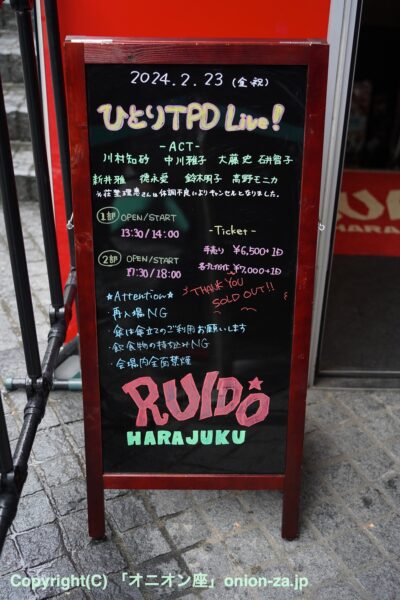 2024.2.23 (金・祝)
ひとりTPD Live!
-ACT-
川村知砂 中川雅子 大藤史 石井智子
新井雅 徳永愛 鈴木明子 高野モニカ
さんは体調不良によりキャンセルとなりました。
1部 OPEN/START
13:30/14:00
-Ticket-
手売り ¥6,500+1D
2部 OPEN/START
17:30/18:00
¥7,000+1D
THANK YOU
SOLD OUT!!
*Attention*
・再入場NG
・傘は傘立てのご利用お願いします
・飲食物の持ち込みNG
・会場内全面禁煙
RUIDO
HARAJUKU
HARAJUKU
Copyright(C) 「オニオン座」onion-za.jp